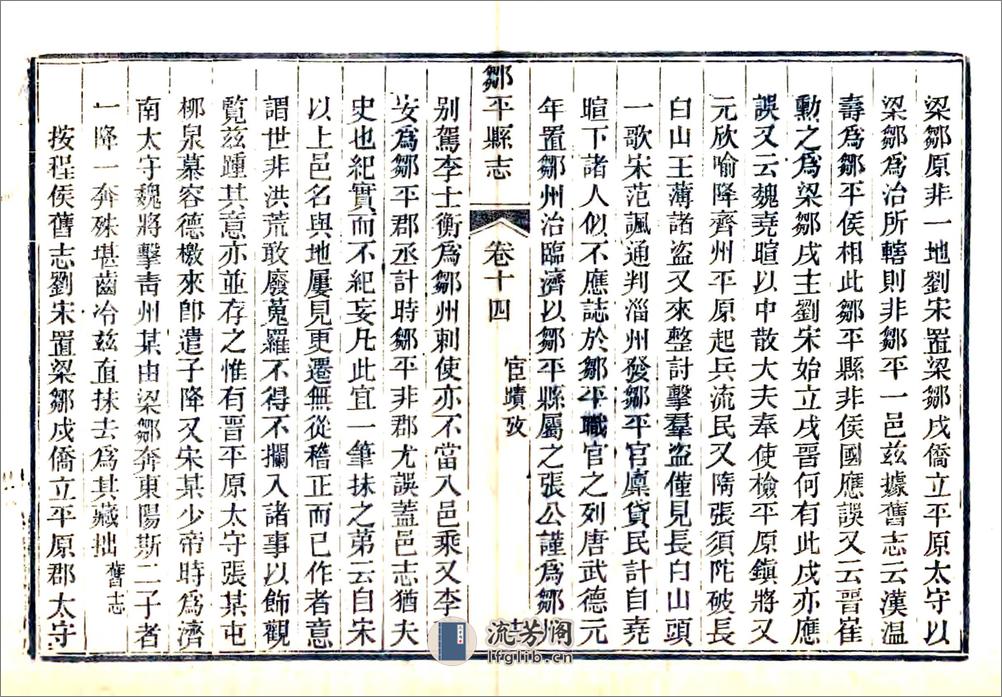 梁鄒原非一地劉宋置梁鄒戍僑立平原太守以
梁鄒為治所轄則非鄒平一邑茲據舊志云漢溫
壽為鄒平侯相此鄒平縣非侯國應誤又云晉崔
勳之為梁鄒戍主劉宋始立戍晉何有此戍亦應
誤又云魏堯暄以中散大夫奉使檢平原鎮將又
元欣喻降齊州平原起兵流民又隋張須陀破長
白山王薄諸盜又來整討擊羣盜僅見長白山頭
一歌宋范諷通判淄州發鄒平官廩貸民計自堯
暄下諸人似不應誌於鄒平職官之列唐武德元
年置鄒州治臨濟以鄒平縣屬之張公謹為鄒州
宦蹟攷
鄒平縣志
卷十四
別駕李士衡為鄒州刺使亦不當入邑乘又李
安為鄒平郡丞計時鄒平非郡尤誤蓋邑志猶夫
史也紀實而不紀妄凡此宜一筆抹之第云自宋
以上邑名與地屢見更遷無從稽正而已作者意
謂世非洪荒敢廢蒐羅不得不攔入諸事以飾觀
覽茲踵其意亦並存之惟有晉平原太守張某屯
柳泉慕容德檄來卽遣子降又宋某少帝時為濟
南太守魏將擊靑州某由梁鄒奔東陽斯二子者
一降一奔殊堪齒冷茲直抹去為其藏拙舊志
按程侯舊志劉宋置梁鄒戍僑立平原郡太守
流芳阁
lfglib.cn